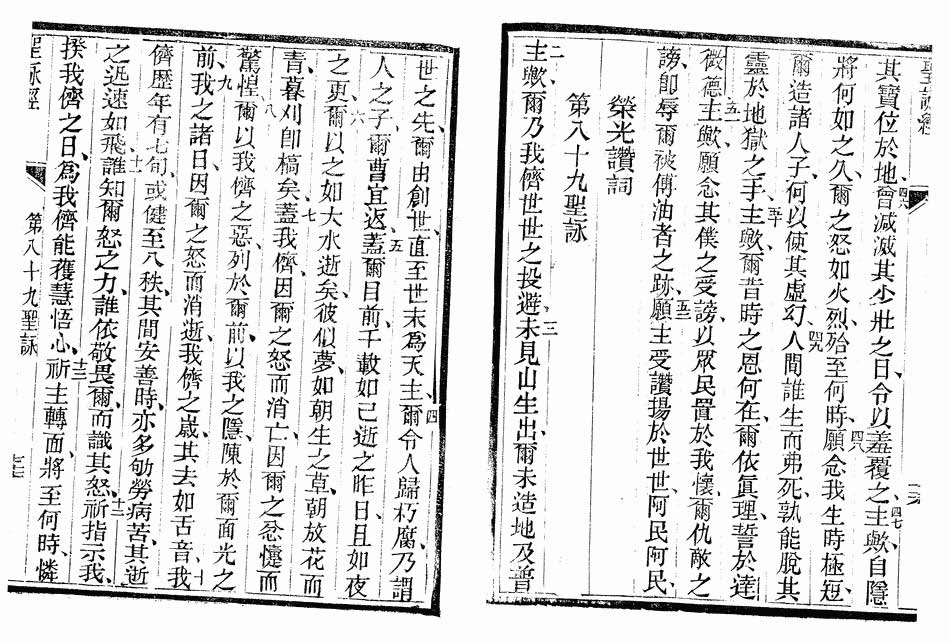 聖詠經
其寶位於地、四六曾減滅其少壯之日、令以羞覆之、四七主歟、自隱
將何如之久、爾之怒如火烈、殆至何時、四八願念我生時極短、
爾造諸人子、何以使其虛幻、四九人間誰生而弗死、孰能脫其
靈於地獄之手、五十主歟、爾昔時之恩何在、爾依眞理誓於達
微德、五一主歟、願念其僕之受謗、以眾民置於我懷、爾仇敵之
謗、即辱爾被傅油者之跡、五二願主受讚揚於世世、阿民阿民
榮光讚詞
第八十九聖詠
二主歟、爾乃我儕世世之投避、三未見山生出、爾未造地及普
世之先、爾由創世、直至世末為天主、四爾令人歸朽腐、乃謂
人之子、爾曹宜返、五蓋爾目前、千載如已逝之昨日、且如夜
之更、六爾以之如大水逝矣、彼似夢、如朝生之草、朝放花而
青、暮刈即槁矣、七蓋我儕、因爾之怒而消亡、因爾之忿懥而
驚惶、八爾以我儕之惡、列於爾前、以我之隱、陳於爾面光之
前、九我之諸日、因爾之怒而消逝、我儕之歲、其去如舌音、十我
儕歷年有七旬、或健至八秩、其間安善時、亦多劬勞病苦、其逝
之迅速如飛、十一誰知爾怒之力、誰依敬畏爾而識其怒、十二祈指示我、
揆我儕之日、為我儕能獲慧悟心、十三祈主轉面、將至何時、憐
聖詠經 第八十九聖詠 二七